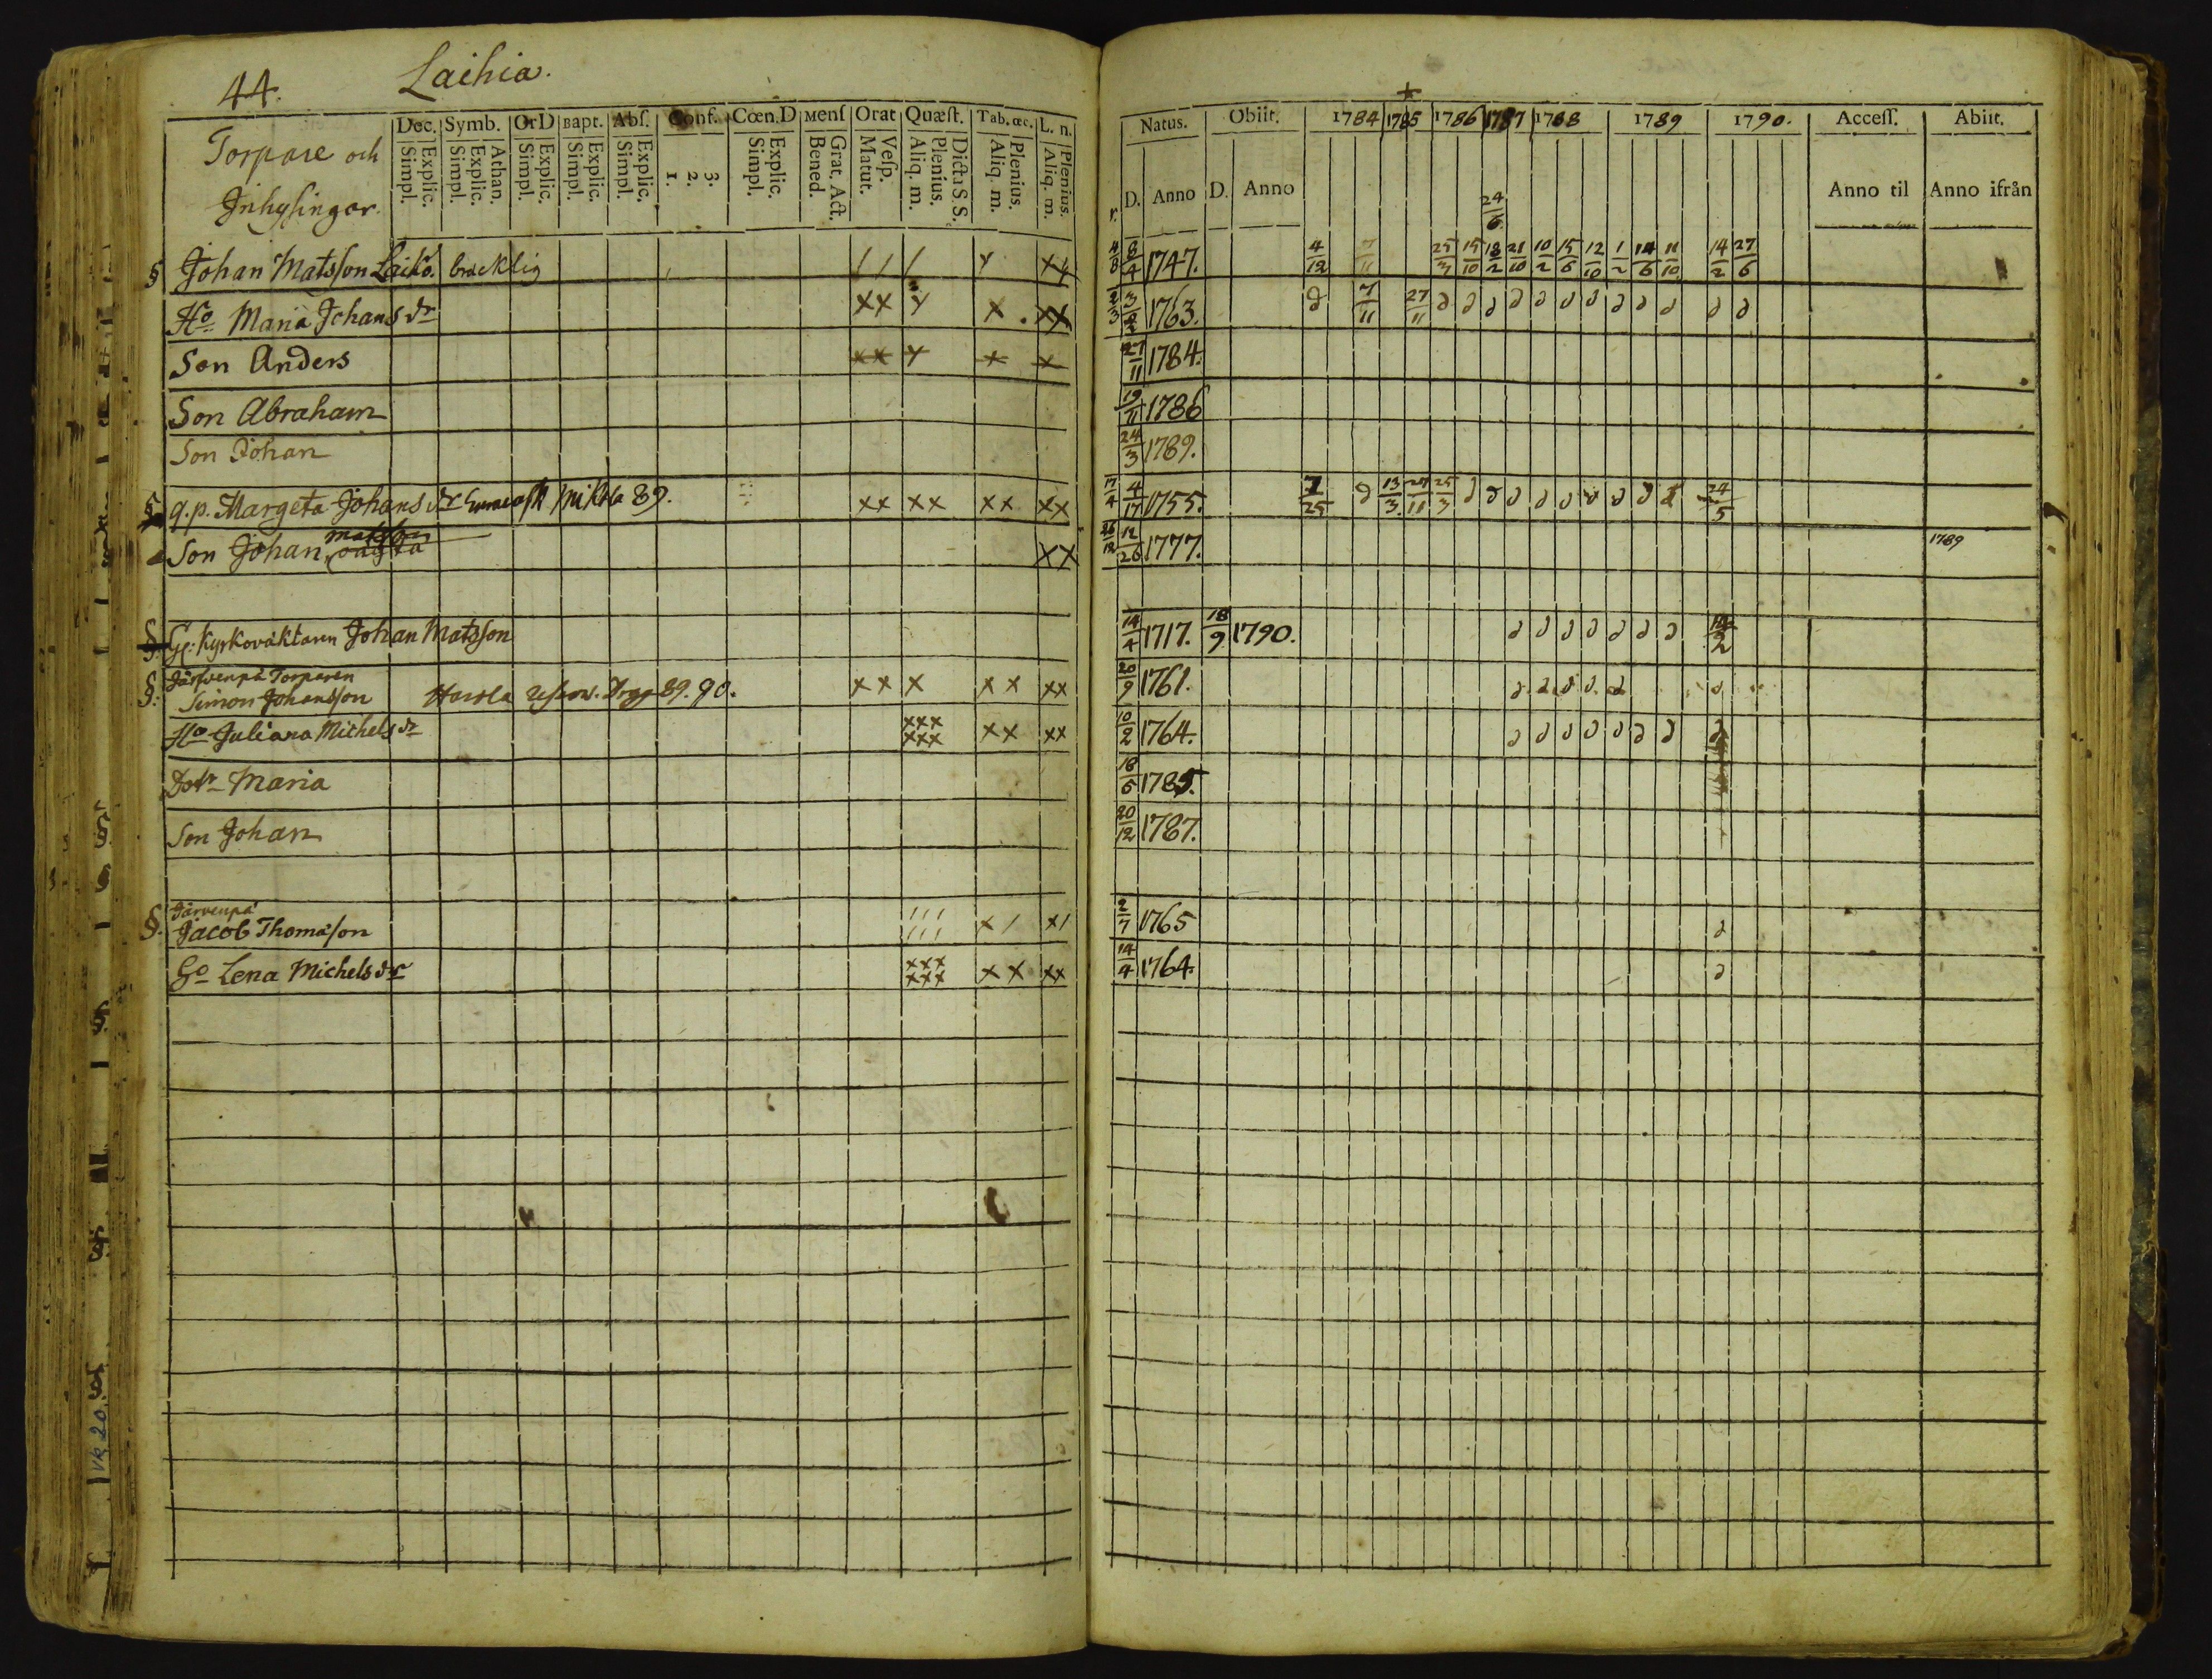 44. Laihia.
Torpare och
Inhysingar.
Dec. Symb. OrD Bapt. Abſ. Conf. Cœn.D Menſ Orat Quæſt. Tab. œc. L. n.
Explic. Simpl. Athan. Explic. Simpl. Explic. Simpl. Explic. Simpl. Explic. Simpl. 3. 2. 1. Explic. Simpl. Grat. Act. Bened. Veſp. Matut. Dicta S S. Plenius. Aliq. m. Plenius. Aliq. m. Plenius. Aliq. m.
Natus. Obiit. 1784 1785 1786 1787 1788 1789 1790. Acceſſ. Abiit.
D. Anno D. Anno Anno til Anno ifrån
24/6
§ Johan Matsson Laiko. bräcklig / / / x xx 4/8 8/4 1747. 4/12 7/11 25/3 15/10 18/2 21/10 10/2 15/6 12/10 1/2 14/6 11/10 14/2 27/6
Ho Maria Johans dr xx x x xx 1763. 7/11 27/11
Son Anders xx x x x 27/11 1784.
Son Abraham 19/11 1786
Son Johan 24/3 1789.
§ q.p. Margeta Johans dr 89. xx xx xx xx 17/4 4/17 1755. 7/25 13/3 27/11 25/3 24/5
Son Johan matsson xx 26/12 12/26 1777. 1789
§ Gl: Kyrkovaktaren Johan Matsson 14/4 1717. 18/9 1790.
§. Järfvenpä Torparen
Simon Johansson 89. 90. xx x xx xx 20/9 1761.
Ho Juliana Michels dr xxx xxx xx xx 10/2 1764.
Dotr Maria 18/5 1785.
Son Johan 20/12 1787.
§. Järvenpä
Jacob Thomasson /// /// x/ x/ 2/7 1765
Ho Lena Michels dr xxx xxx xx xx 14/4 1764.